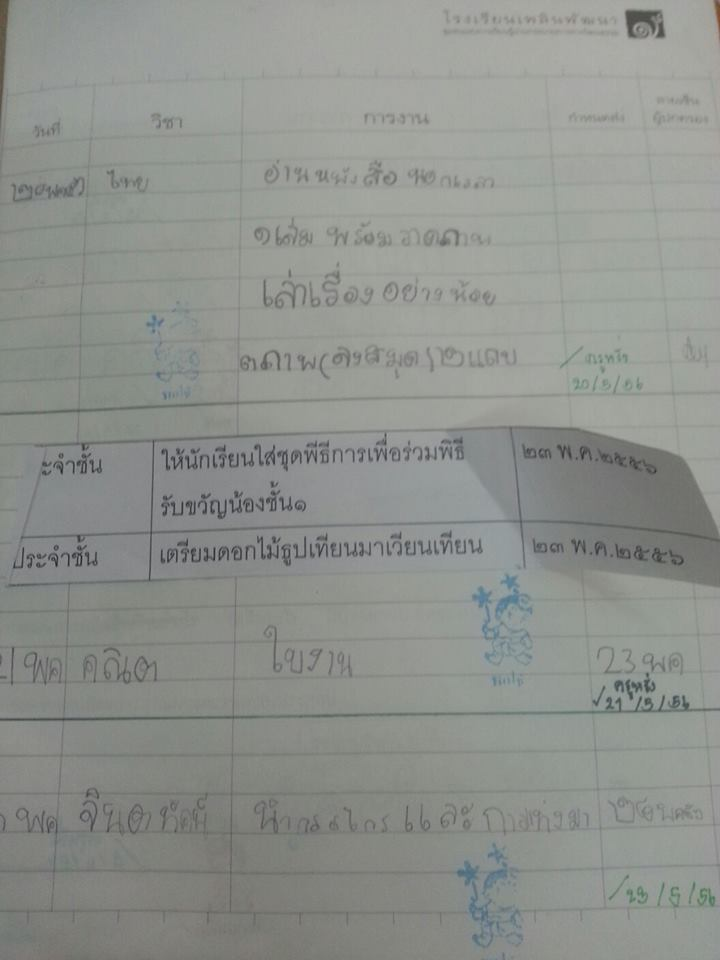 โรงเรียนเพลินพัฒนา
วันที่ วิชา การงาน กำหนดส่ง ลายเซ็น
ผู้ปกครอง
ไทย อ่านหนังสือนอกเวลา
๑เล่ม พร้อมวาดภาพ
เล่าเรื่องอย่างน้อย
๓ภาพ(ลงสมุด)๒แถบ /ครูหรั่ง
20/5/56
ะจำชั้น ให้นักเรียนใส่ชุดพิธีการเพื่อร่วมพิธี ๒๓ พ.ค.๒๕๕๖
รับขวัญน้องชั้น๑
ประจำชั้น เตรียมดอกไม้ธูปเทียนมาเวียนเทียน ๒๓ พ.ค.๒๕๕๖
21 พค คณิต ใบงาน 23 พค
ครูหรั่ง
√21/5/56
พค จินตทัศน์ นำกรรไกร และ กาวแท่งมา
/23/5/56